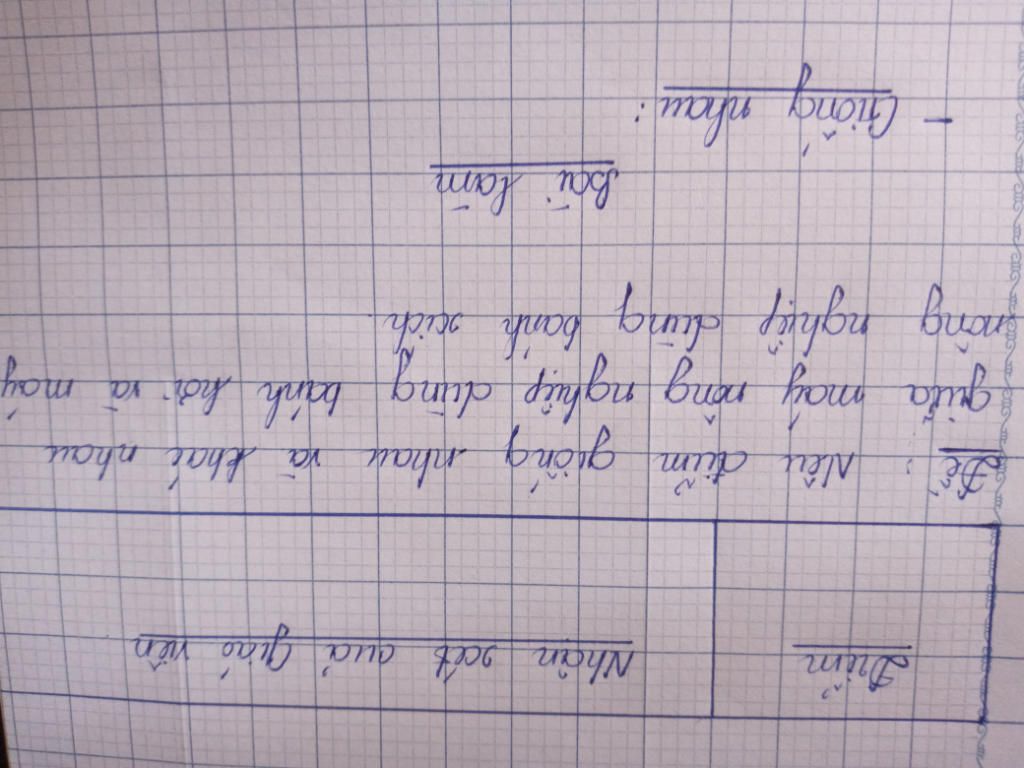 Điểm
Nhận xét của Giáo viên
Đề: Nêu điểm giống nhau và khác nhau
giữa máy nông nghiệp dùng bánh hơi và máy
nông nghiệp dùng bánh xích.
Bài làm
- Giống nhau: